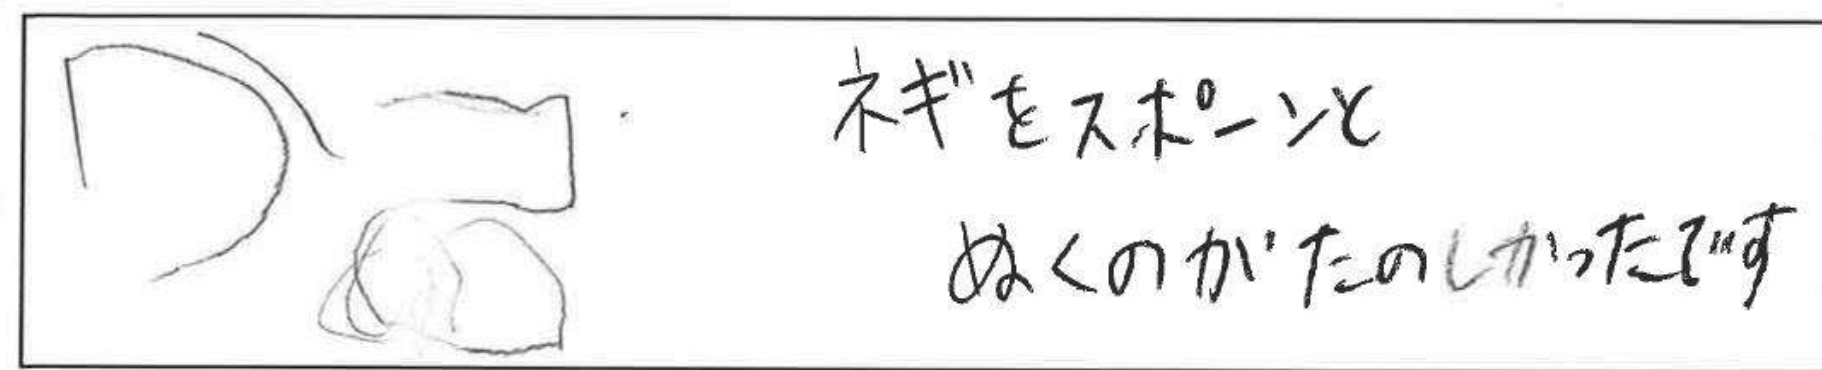 ネギをスポーンと
ぬくのがたのしかったです